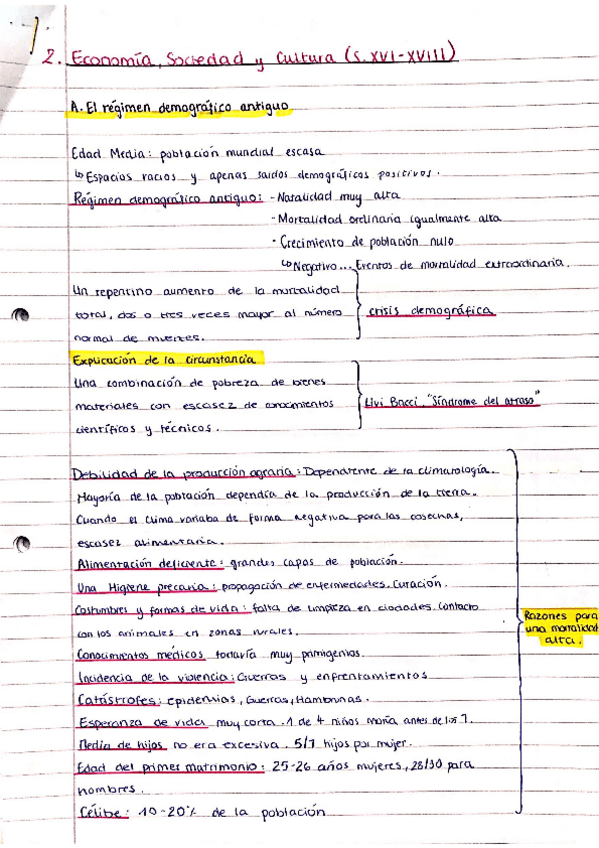 2. Economía, Sociedad y Cultura (S. XVI-XVIII)
A. El régimen demográfico antiguo
Edad Media: población mundial escasa
↳ Espacios vacíos y apenas saldos demográficos positivos.
Régimen demográfico antiguo: - Natalidad muy alta
- Mortalidad ordinaria igualmente alta
- Crecimiento de población nulo
↳ Negativo... Eventos de mortalidad extraordinaria.
Un repentino aumento de la mortalidad
total, dos o tres veces mayor al número
normal de muertes.
crisis demográfica
Explicación de la circunstancia
Una combinación de pobreza de bienes
materiales con escasez de conocimientos
científicos y técnicos.
Livi Bacci "Síndrome del atraso"
Debilidad de la producción agraria: Dependiente de la climatología.
Mayoría de la población dependía de la producción de la tierra.
Cuando el clima variaba de forma negativa para las cosechas,
escasez alimentaria.
Alimentación deficiente: grandes capas de población.
Una Higiene precaria: propagación de enfermedades. Curación.
Costumbres y formas de vida: falta de limpieza en ciudades. Contacto
con los animales en zonas rurales.
Conocimientos médicos todavía muy primigenios.
Incidencia de la violencia: Guerras y enfrentamientos
Catástrofes: epidemias, Guerras, Hambrunas.
Esperanza de vida muy corta. 1 de 4 niños moría antes de los 7.
Media de hijos no era excesiva. 5/7 hijos por mujer.
Edad del primer matrimonio: 25-26 años mujeres, 28/30 para
hombres.
Célibe: 10-20% de la población
Razones para
una mortalidad
alta.